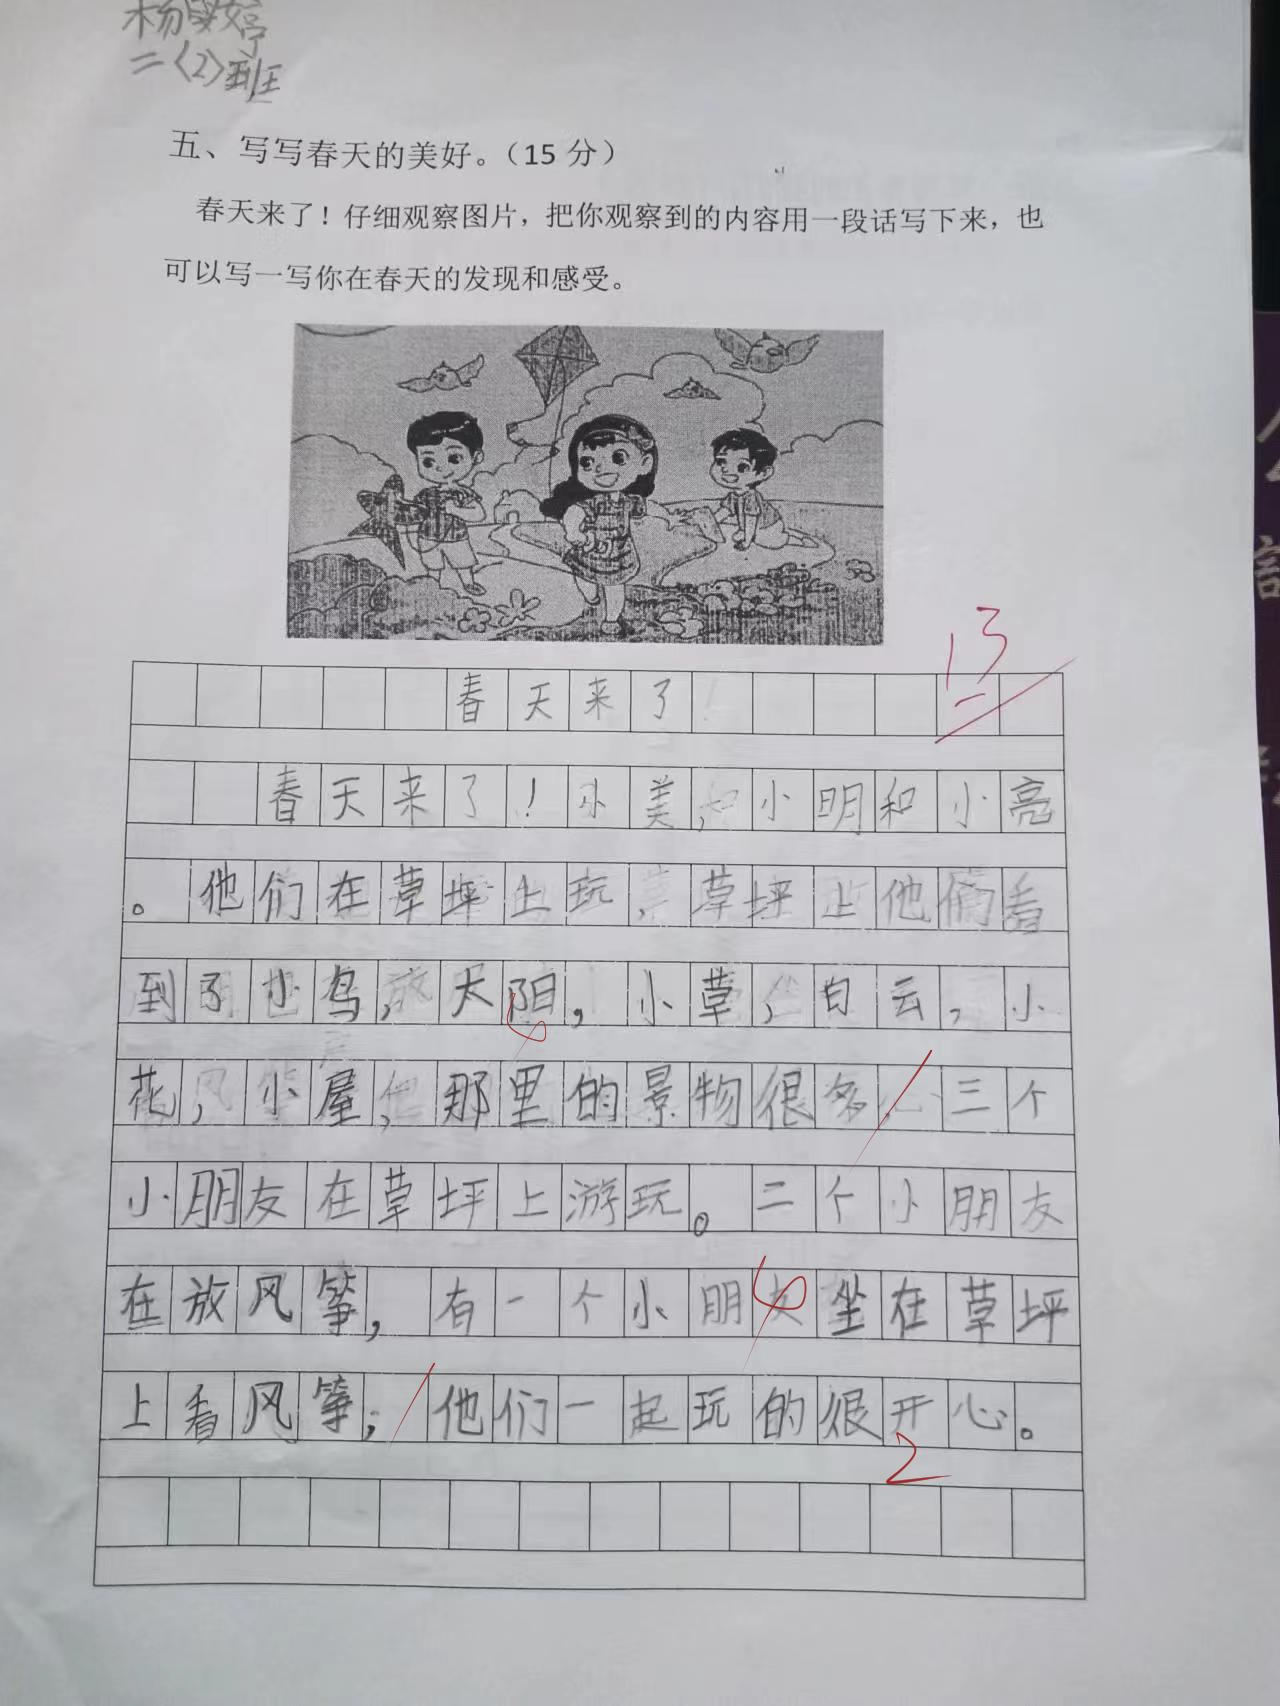 二（2）班
五、写写春天的美好。（15 分）
春天来了！仔细观察图片，把你观察到的内容用一段话写下来，也
可以写一写你在春天的发现和感受。
13
春天来了！
春天来了！小美，小明和小亮
。他们在草坪上玩，草坪上他们看
到了小鸟，太阳，小草，白云，小
花，小屋，那里的景物很多，三个
小朋友在草坪上游玩。二个小朋友
在放风筝，有一个小朋友坐在草坪
上看风筝，他们一起玩的很开心。
2